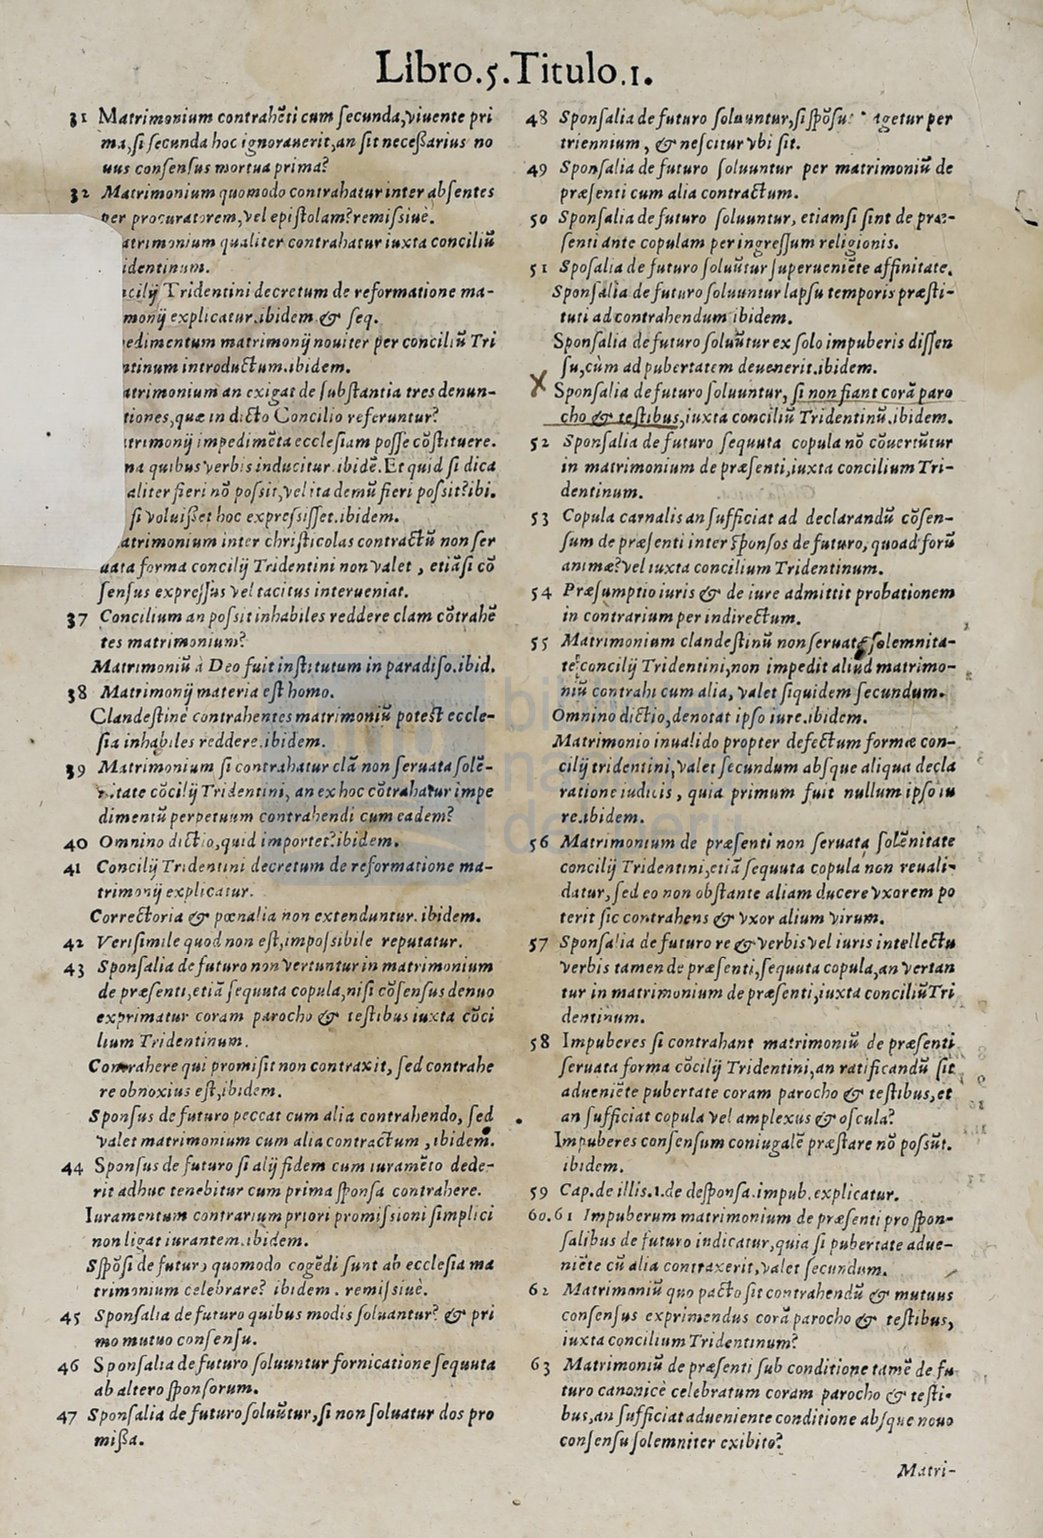 Libro.5.Titulo.1.
31 Matrimonium contrahẽti cum ſecunda,viuente pri
ma,ſi ſecunda hoc ignorauerit,an ſit neceßarius no
uus conſenſus mortua prima?
32 Matrimonium quomodo contrahatur inter abſentes
per procuratorem,vel epiſtolam?remiſsiuè.
atrimonium qualiter contrahatur iuxta conciliũ
identinum.
cilij Tridentini decretum de reformatione ma-
monij explicatur.ibidem & ſeq.
edimentum matrimonij nouiter per conciliũ Tri
ntinum introductum.ibidem.
atrimonium an exigat de ſubſtantia tres denun-
tiones,quæ in dicto Concilio referuntur?
trimonij impedimẽta eccleſiam poſſe cõſtituere.
na quibus verbis inducitur.ibidẽ.Et quid ſi dica
aliter fieri nõ poſsit,vel ita demũ fieri poſsit?ibi.
ſi voluißet hoc expreſsiſſet.ibidem.
atrimonium inter chriſticolas contractũ non ſer
uata forma concilij Tridentini non valet , etiãſi cõ
ſenſus expreſſus vel tacitus interueniat.
37 Concilium an poſsit inhabiles reddere clam cõtrahẽ
tes matrimonium?
Matrimoniũ à Deo fuit inſtitutum in paradiſo.ibid.
38 Matrimonij materia eſt homo.
Clandeſtinè contrahentes matrimoniũ poteſt eccle-
ſia inhabiles reddere.ibidem.
39 Matrimonium ſi contrahatur clã non ſeruata ſolẽ-
nitate cõcilij Tridentini, an ex hoc cõtrahatur impe
dimentũ perpetuum contrahendi cum eadem?
40 Omnino dictio,quid importet?ibidem.
41 Concilij Tridentini decretum de reformatione ma-
trimonij explicatur.
Correctoria & pœnalia non extenduntur.ibidem.
42 Veriſimile quod non eſt,impoſsibile reputatur.
43 Sponſalia de futuro non vertuntur in matrimonium
de præſenti,etiã ſequuta copula,niſi cõſenſus denuo
exprimatur coram parocho & teſtibus iuxta cõci
lium Tridentinum.
Contrahere qui promiſit non contraxit, ſed contrahe
re obnoxius eſt,ibidem.
Sponſus de futuro peccat cum alia contrahendo, ſed
valet matrimonium cum alia contractum ,ibidem.
44 Sponſus de futuro ſi alij fidem cum iuramẽto dede-
rit adhuc tenebitur cum prima ſponſa contrahere.
Iuramentum contrarium priori promiſsioni ſimplici
non ligat iurantem.ibidem.
Sſpõſi de futuro quomodo cogẽdi ſunt ab eccleſia ma
trimonium celebrare? ibidem . remiſsiuè.
45 Sponſalia de futuro quibus modis ſoluantur? & pri
mo mutuo conſenſu.
46 Sponſalia de futuro ſoluuntur fornicatione ſequuta
ab altero ſponſorum.
47 Sponſalia de futuro ſoluũtur,ſi non ſoluatur dos pro
mißa.
48 Sponſalia de futuro ſoluuntur,ſi ſpõſu: agetur per
triennium , & neſcitur vbi ſit.
49 Sponſalia de futuro ſoluuntur per matrimoniũ de
præſenti cum alia contractum.
50 Sponſalia de futuro ſoluuntur, etiamſi ſint de præ-
ſenti ante copulam per ingreſſum religionis.
51 Spoſalia de futuro ſoluũtur ſuperueniẽte affinitate.
Sponſalia de futuro ſoluuntur lapſu temporis præſti-
tuti ad contrahendum ibidem.
Sponſalia de futuro ſoluũtur ex ſolo impuberis diſſen
ſu,cùm ad pubertatem deuenerit.ibidem.
Sponſalia de futuro ſoluuntur, ſi non fiant corã paro
cho & teſtibus,iuxta conciliũ Tridentinũ.ibidem.
52 Sponſalia de futuro ſequuta copula nõ cõuertũtur
in matrimonium de præſenti,iuxta concilium Tri-
dentinum.
53 Copula carnalis an ſufficiat ad declarandũ cõſen-
ſum de præſenti inter ſponſos de futuro, quoad forũ
animæ?vel iuxta concilium Tridentinum.
54 Præſumptio iuris & de iure admittit probationem
in contrarium per indirectum.
55 Matrimonium clandeſtinũ non ſeruata ſolemnita-
te concilij Tridentini,non impedit aliud matrimo-
niũ contrahi cum alia, valet ſiquidem ſecundum.
Omnino dictio,denotat ipſo iure.ibidem.
Matrimonio inualido propter defectum formæ con-
cilij tridentini,valet ſecundum abſque aliqua decla
ratione iudicis , quia primum fuit nullum ipſo iu
re.ibidem.
56 Matrimonium de præſenti non ſeruata ſolẽnitate
concilij Tridentini,etiã ſequuta copula non reuali-
datur, ſed eo non obſtante aliam ducere vxorem po
terit ſic contrahens & vxor alium virum.
57 Sponſalia de futuro re & verbis vel iuris intellectu
verbis tamen de præſenti,ſequuta copula,an vertan
tur in matrimonium de præſenti,iuxta conciliũ Tri
dentinum.
58 Impuberes ſi contrahant matrimoniũ de præſenti
ſeruata forma cõcilij Tridentini,an ratificandũ ſit
adueniẽte pubertate coram parocho & teſtibus,et
an ſufficiat copula vel amplexus & oſcula?
Impuberes conſenſum coniugalẽ præſtare nõ poſsũt.
ibidem.
59 Cap.de illis.1.de deſponſa.impub.explicatur.
60.61 Impuberum matrimonium de præſenti pro ſpon-
ſalibus de futuro indicatur,quia ſi pubertate adue-
niẽte cũ alia contraxerit,valet ſecundum.
62 Matrimoniũ quo pacto ſit contrahendũ & mutuus
conſenſus exprimendus corã parocho & teſtibus,
iuxta concilium Tridentinum?
63 Matrimoniũ de præſenti ſub conditione tamẽ de fu
turo canonicè celebratum coram parocho & teſti-
bus,an ſufficiat adueniente conditione abſque nouo
conſenſu ſolemniter exibito?
Matri-